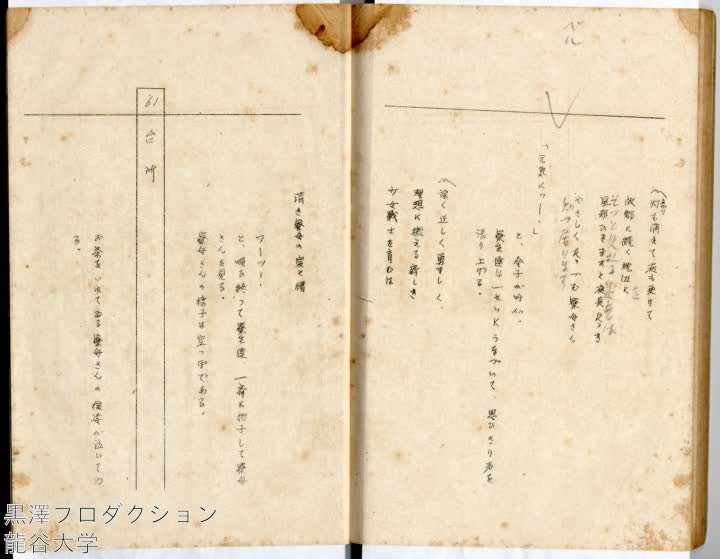 ベル
灯も消えて夜も更けて
次郎に続く枕辺に
風邪ひきますと夜具たゝき
やさしく
寮母さん
「元気にッー」
と、令子が叫ぶ。
寮生達は一せいにうなづいて、思ひきり声を
張り上げる。
強く正しく勇ましく、
理想に燃える新しき
少女戦士を育むは
清き寮母の愛と情
ワーツー
と、唄ひ終って寮生達、一斉に拍子して寮母
さんを見る。
寮母さんの椅子は空つぽである。
61 台所
お茶をいれてゐる寮母さんの後姿が泣いてゐ
る。
黒澤プロダクション
龍谷大学